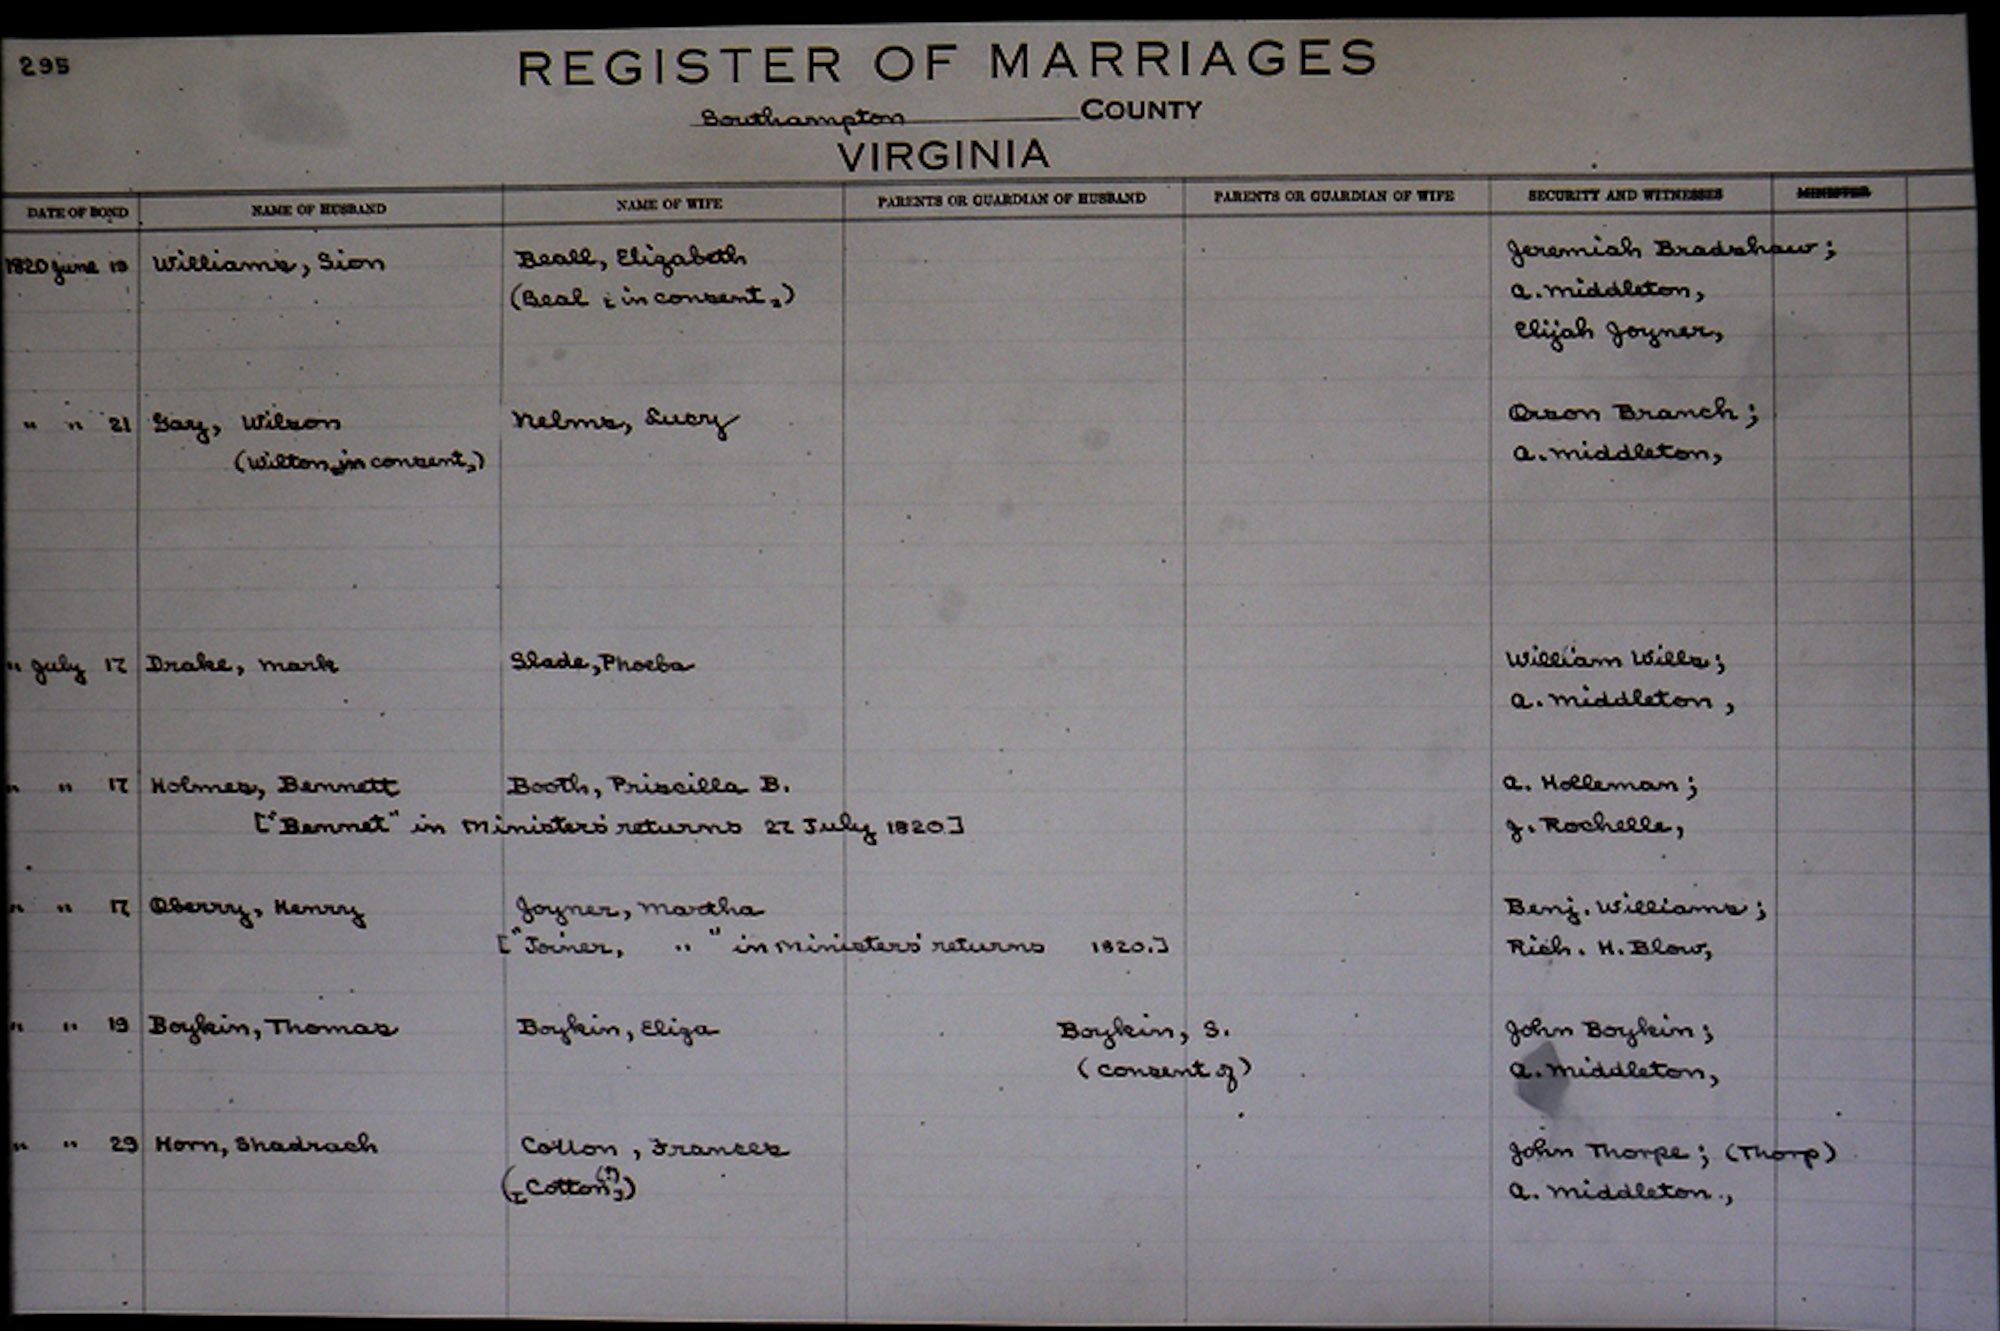 295
REGISTER OF MARRIAGES
Southampton COUNTY
VIRGINIA
DATE OF BOND NAME OF HUSBAND NAME OF WIFE PARENTS OR GUARDIAN OF HUSBAND PARENTS OR GUARDIAN OF WIFE SECURITY AND WITNESSES MINISTER
1820 June 19 Williams, Sion Beall, Elizabeth Jeremiah Bradshaw;
(Beal [in consent]) A. Middleton,
Elijah Joyner,
" " 21 Gay, Wilson Nelms, Lucy Orson Branch;
(Wilton, in consent,) A. Middleton,
" July 17 Drake, Mark Slade, Phoeba William Wills;
A. Middleton,
" " 17 Holmes, Bennett Booth, Priscilla B. A. Holleman;
["Bennet" in Ministers' returns 27 July 1820.] J. Rochelle,
" " 17 Oberry, Henry Joyner, Martha Benj. Williams;
["Joiner, " " in Ministers' returns 1820.] Rich. H. Blow,
" " 19 Boykin, Thomas Boykin, Eliza Boykin, S. John Boykin;
(consent of) A. Middleton,
" " 29 Horn, Shadrach Collon, Frances John Thorpe; (Thorp)
([Cotton(?)]) A. Middleton.,